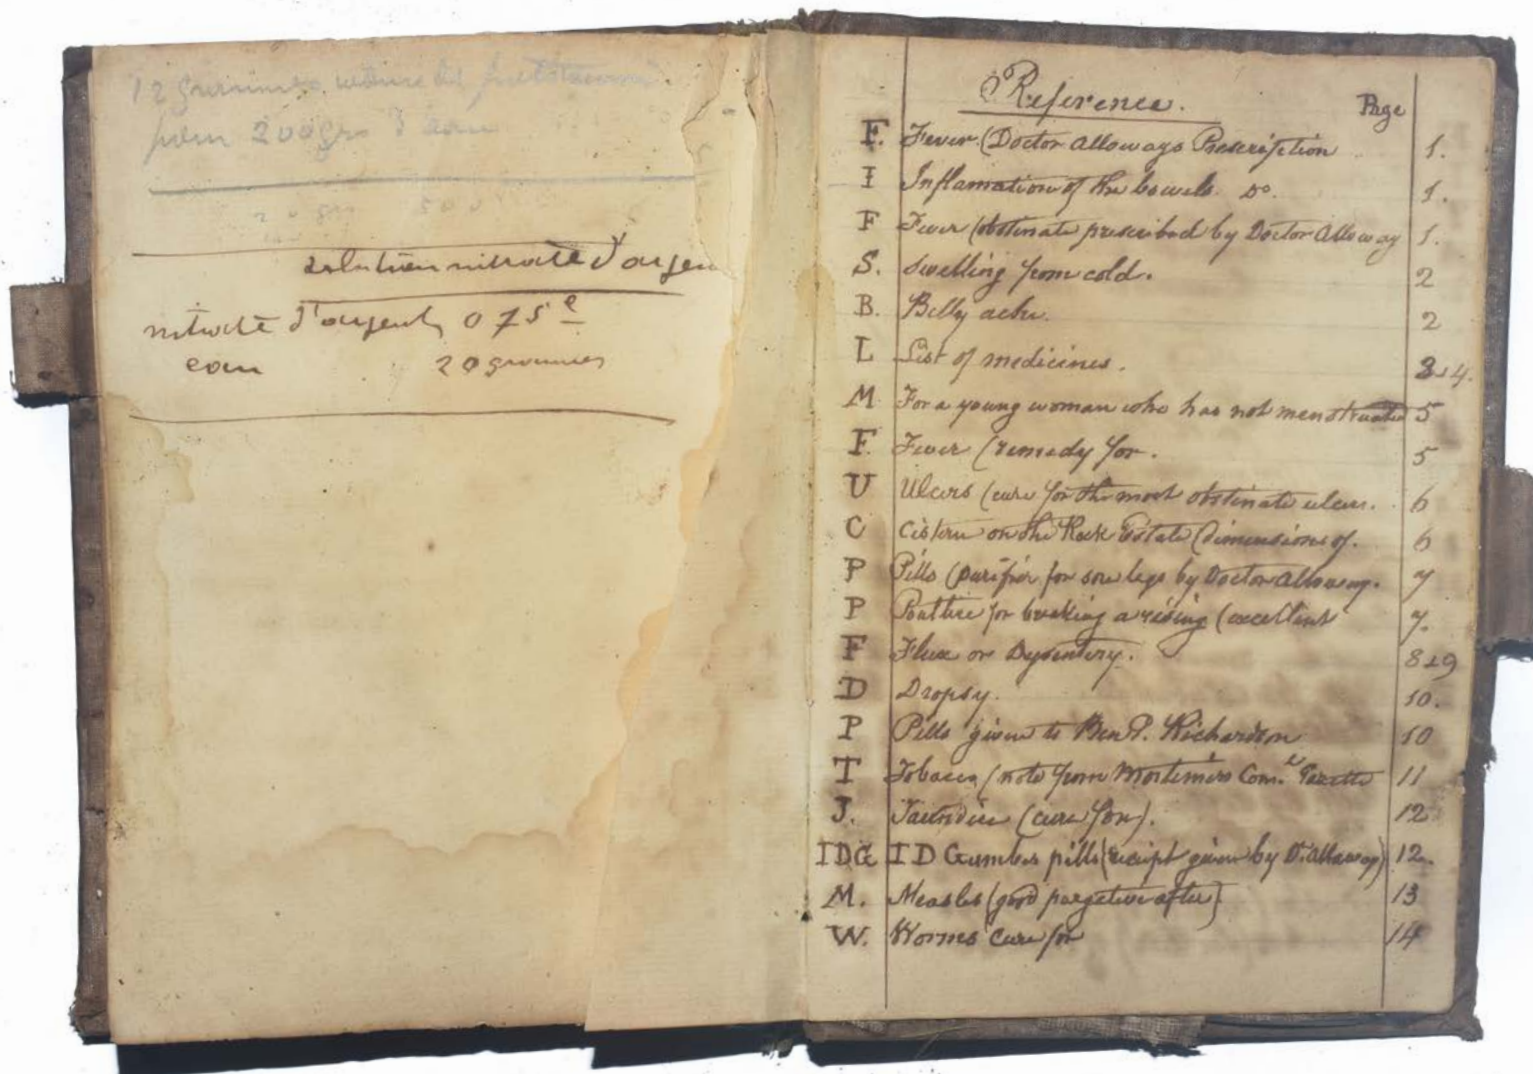 12 grammes
pour 200 grs d'eau
solution nitrate d'argen
nitrate d'argent 0 75 e
eau 20 grammes
Reference. Page
F. Fever (Doctor Alloways Prescription 1.
I Inflamation of the bowels. Do. 1.
F Fever (obstinate prescribed by Doctor Alloway 1.
S. Swelling from cold. 2
B. Belly ache. 2
L List of medicines. 3+4.
M For a young woman who has not menstruated 5
F. Fever (remedy for. 5
U Ulcers (cure for the most obstinate ulcers. 6
C Cistern on the Rock Estate (dimensions of. 6
P Pills (purifier for sore legs by Doctor Alloway. 7
P Poultice for breaking a rising (excellent 7.
F Flux or Dysentery. 8+9
D Dropsy. 10.
P Pills given to Ben P. Richardson 10
T Tobacco (note from Mortimers Com.l Gazette 11
J. Jaundice (cure for). 12
IDG I D Gumbes pills (receipt given by Dr. Alloway) 12.
M. Measles (good purgative after) 13
W. Worms cure for 14